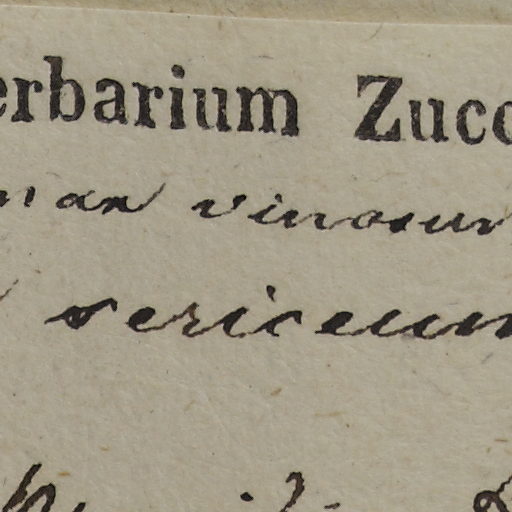 erbarium Zucc
man vinosum
sericeum